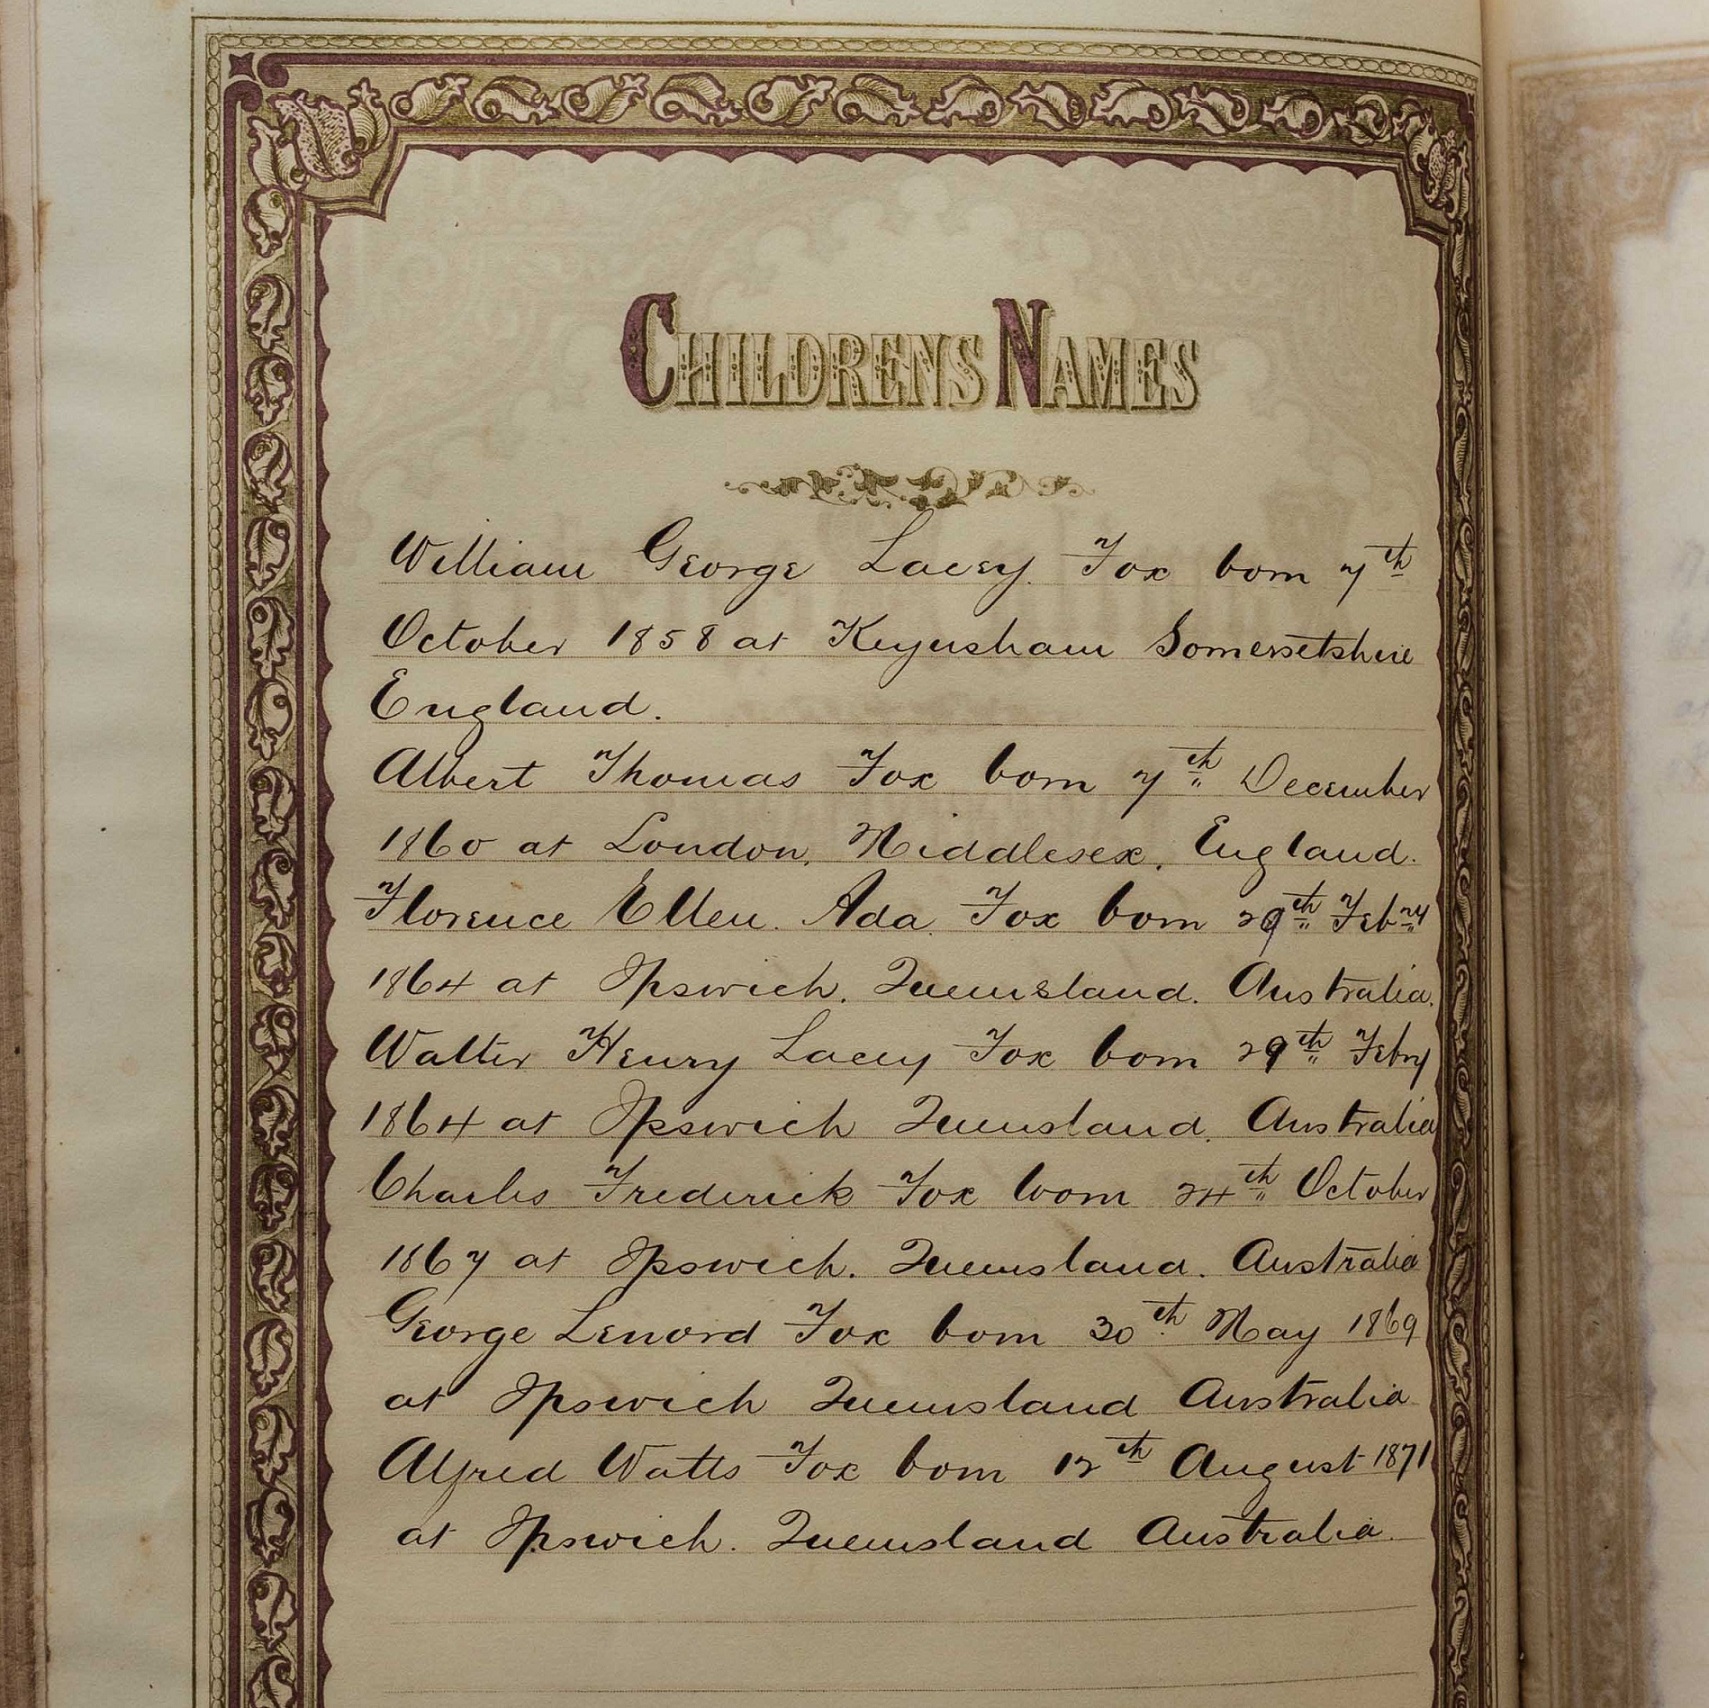 CHILDRENS NAMES
William George Lacey. Fox born 7th
October 1858 at Keynsham Somersetshire
England.
Albert Thomas Fox born 7th December
1860 at London, Middlesex, England.
Florence Ellen. Ada. Fox born 29th Febry
1864 at Ipswich. Queensland. Australia.
Walter Henry Lacey Fox born 29th Febry
1864 at Ipswich Queensland. Australia
Charles Frederick Fox born 24th October
1867 at Ipswich. Queensland. Australia
George Lenord Fox born 30th May 1869
at Ipswich Queensland Australia
Alfred Watts Fox born 12th August 1871
at Ipswich. Queensland Australia.